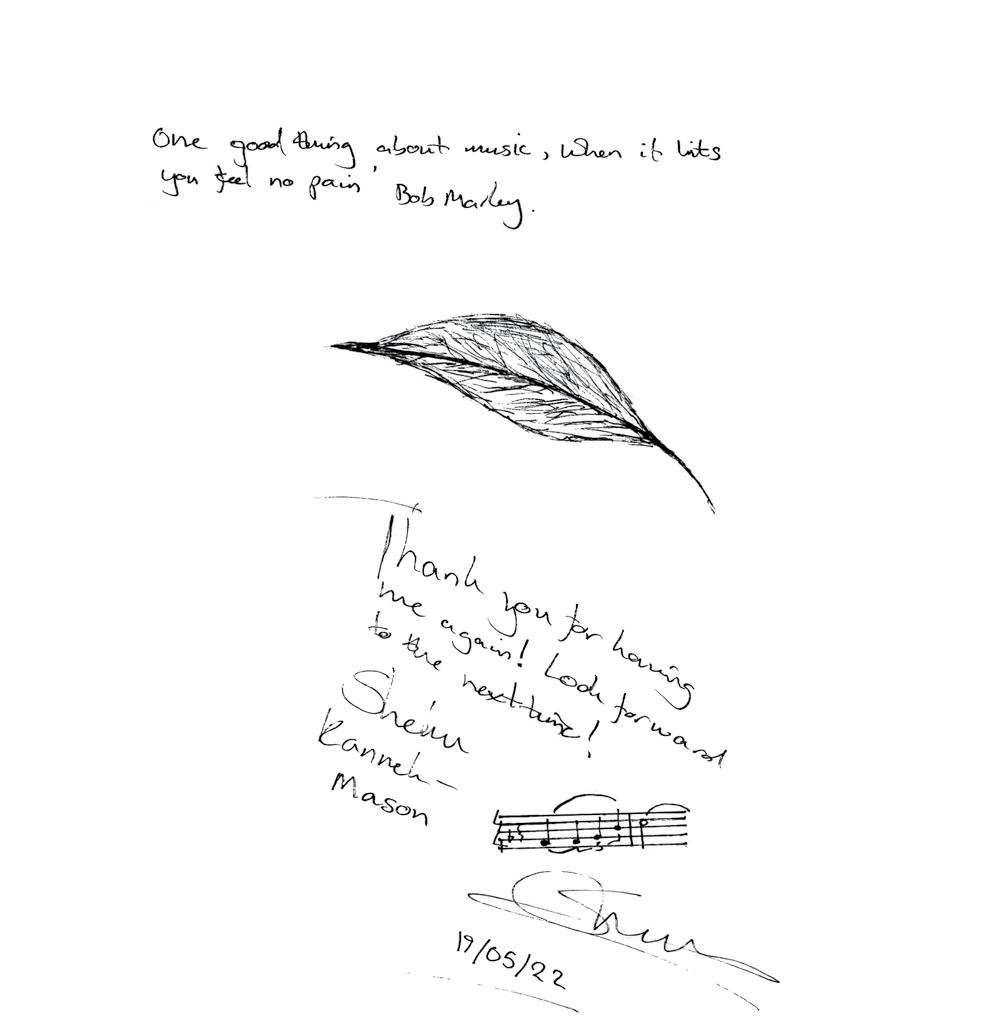 One good thing about music, when it hits
you feel no pain' Bob Marley.
Thank you for having
me again! Look forward
to the next time!
Sheku
Kanneh-
Mason
19/05/22